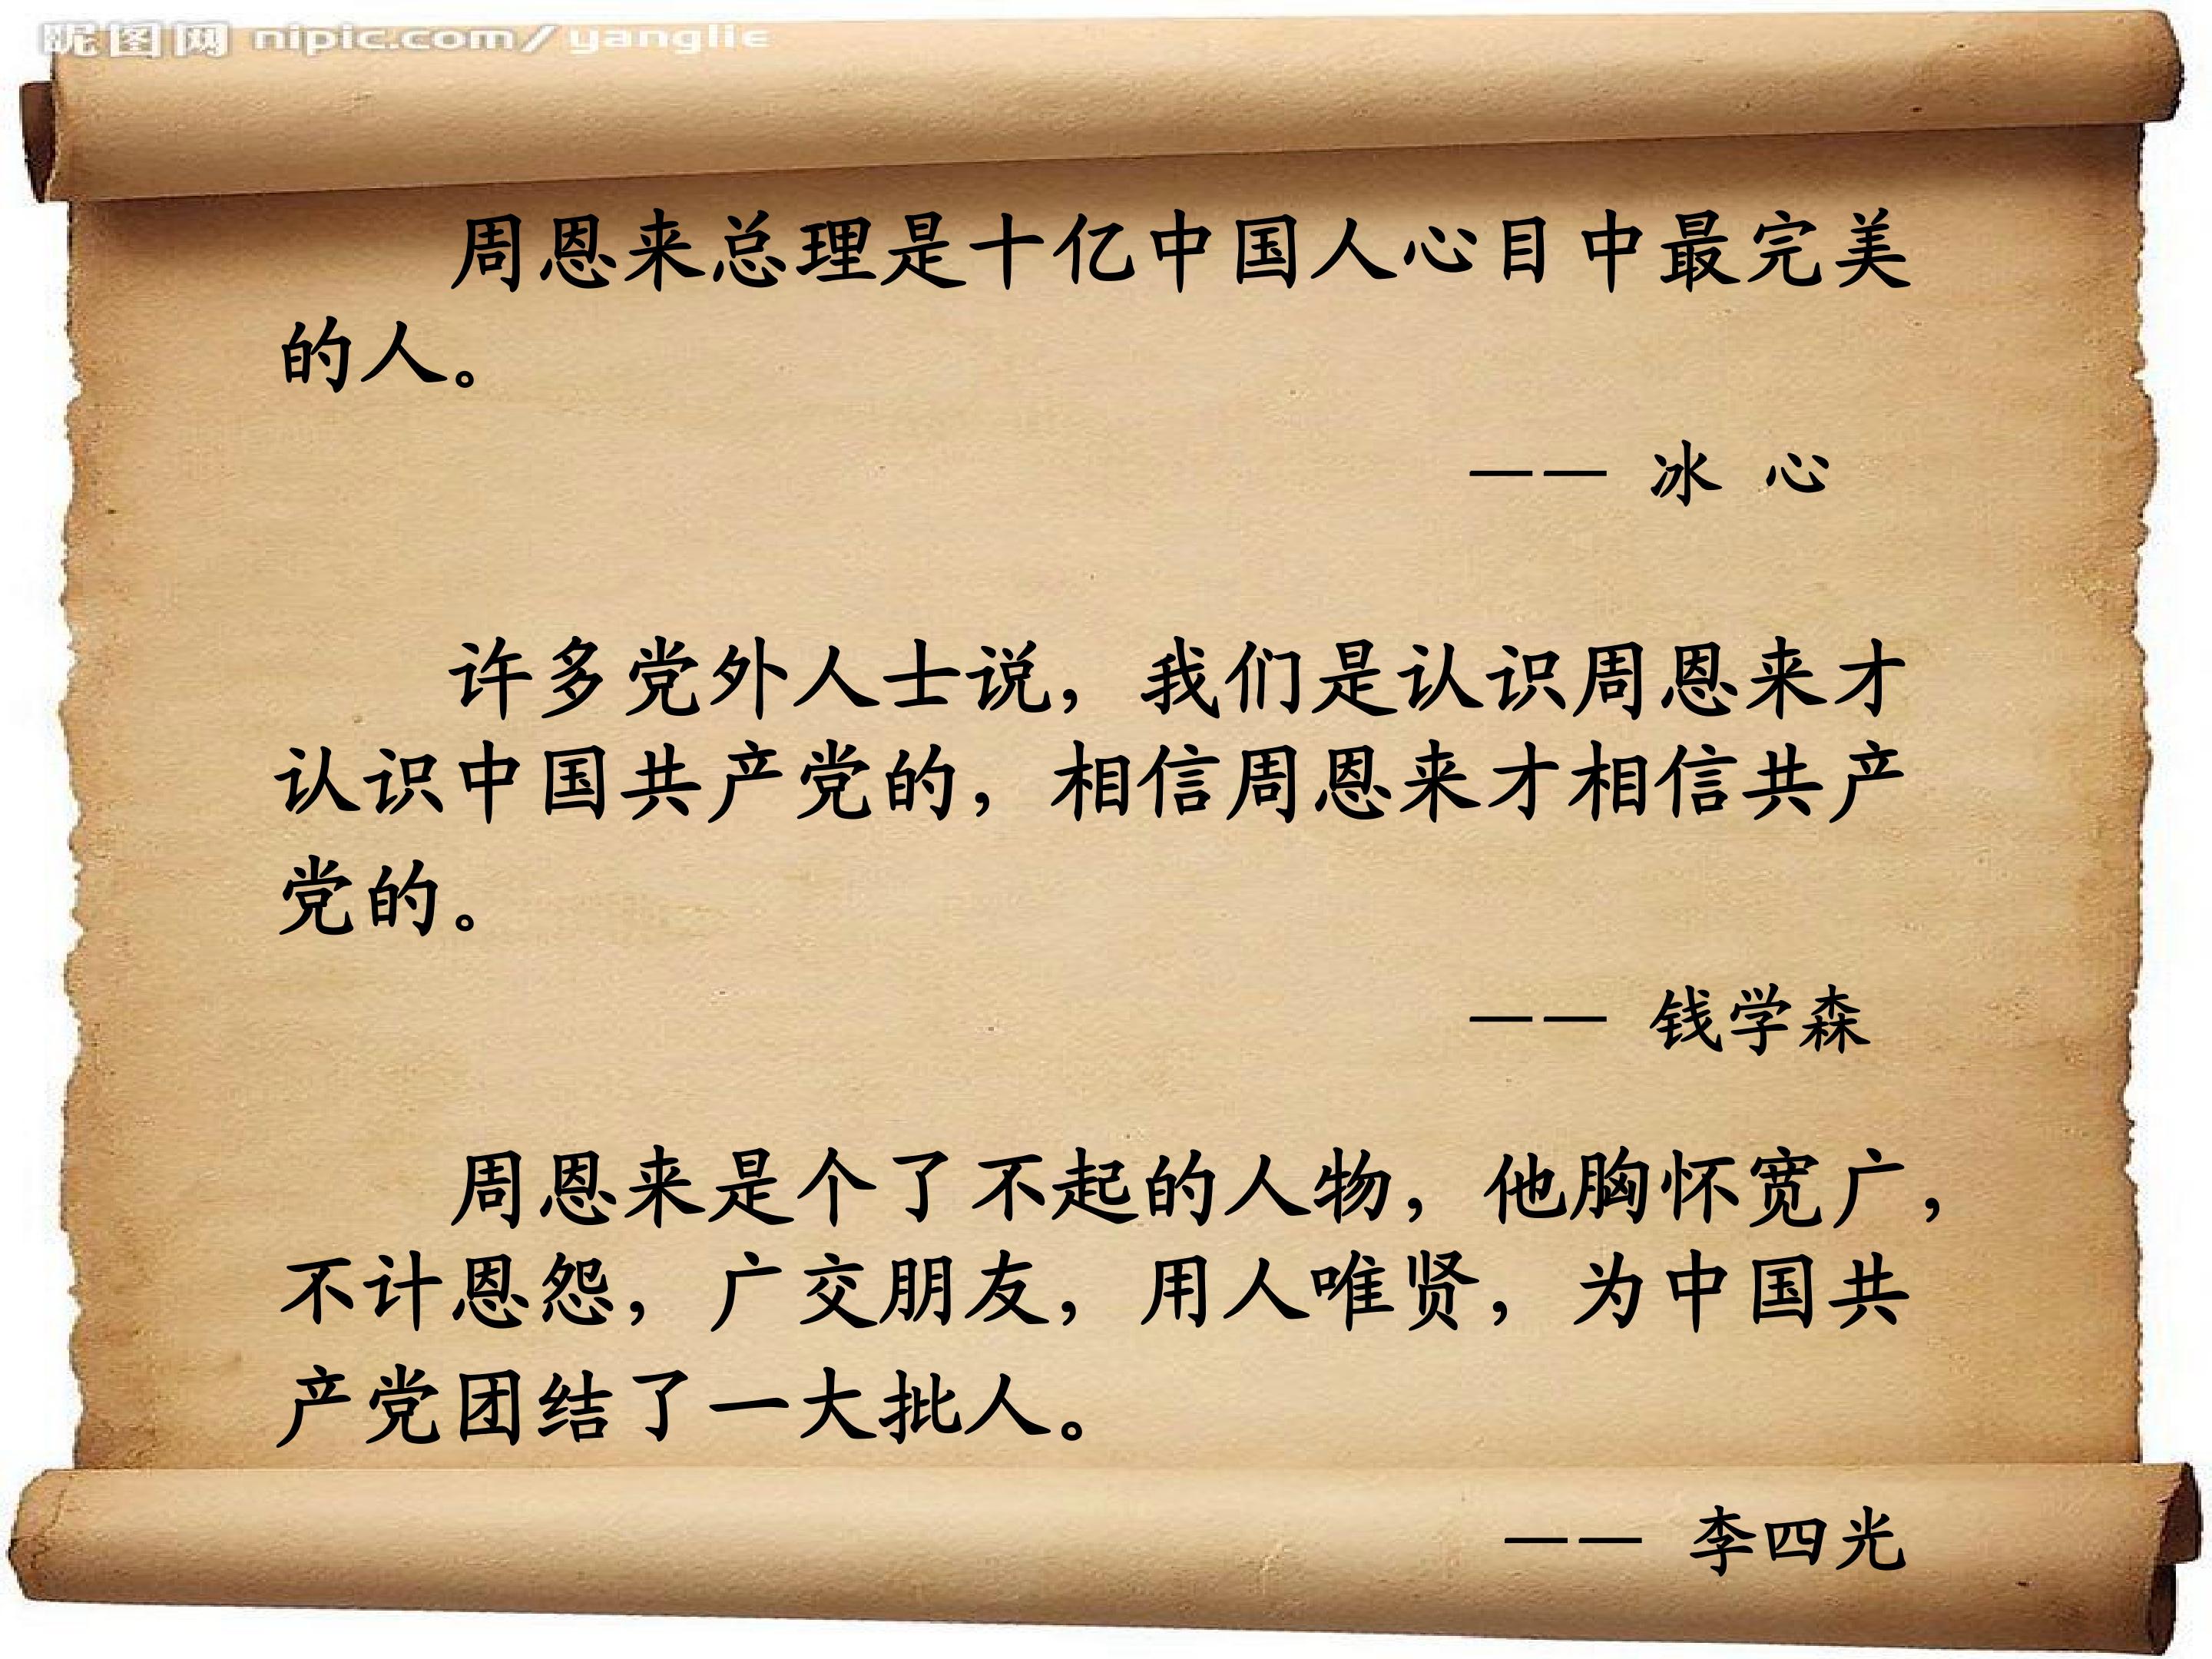 昵图网 nipic.com/yanglie
周恩来总理是十亿中国人心目中最完美
的人。
—— 冰 心
许多党外人士说，我们是认识周恩来才
认识中国共产党的，相信周恩来才相信共产
党的。
—— 钱学森
周恩来是个了不起的人物，他胸怀宽广，
不计恩怨，广交朋友，用人唯贤，为中国共
产党团结了一大批人。
—— 李四光